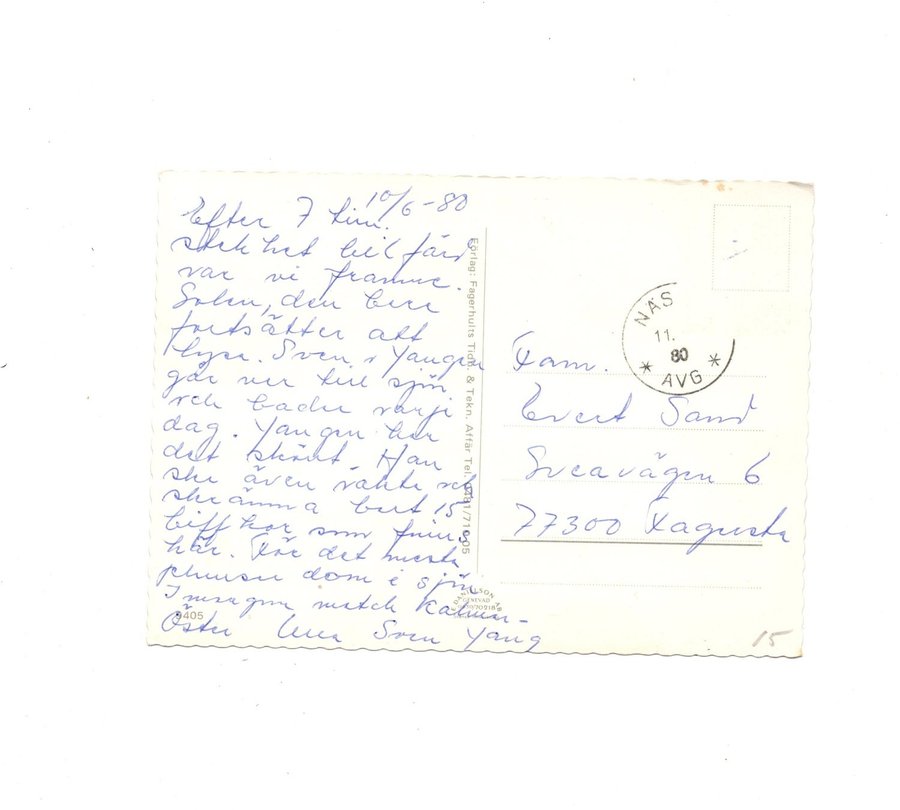 10/6-80
Efter 7 tim.
stekhet bilfärd
var vi framme.
Solen, den bere
fortsätter att
lysa. Sven o Yangen
går ner till sjön
och badar varje
dag. Yangen har
det skönt. Han
ska även vakta och
skrämma bort 15
biffkor som finns
här. För det mesta
plumsar dom i sjön
I morgon match Kalmar-
Öster Sven Yang
Förlag: Fagerhults Tidn. & Tekn. Affär Tel. 0481/710 05
9405
NÄS
11.
80
* AVG *
Fam.
Evert Sand
Sveavägen 6
77300 Fagersta
15